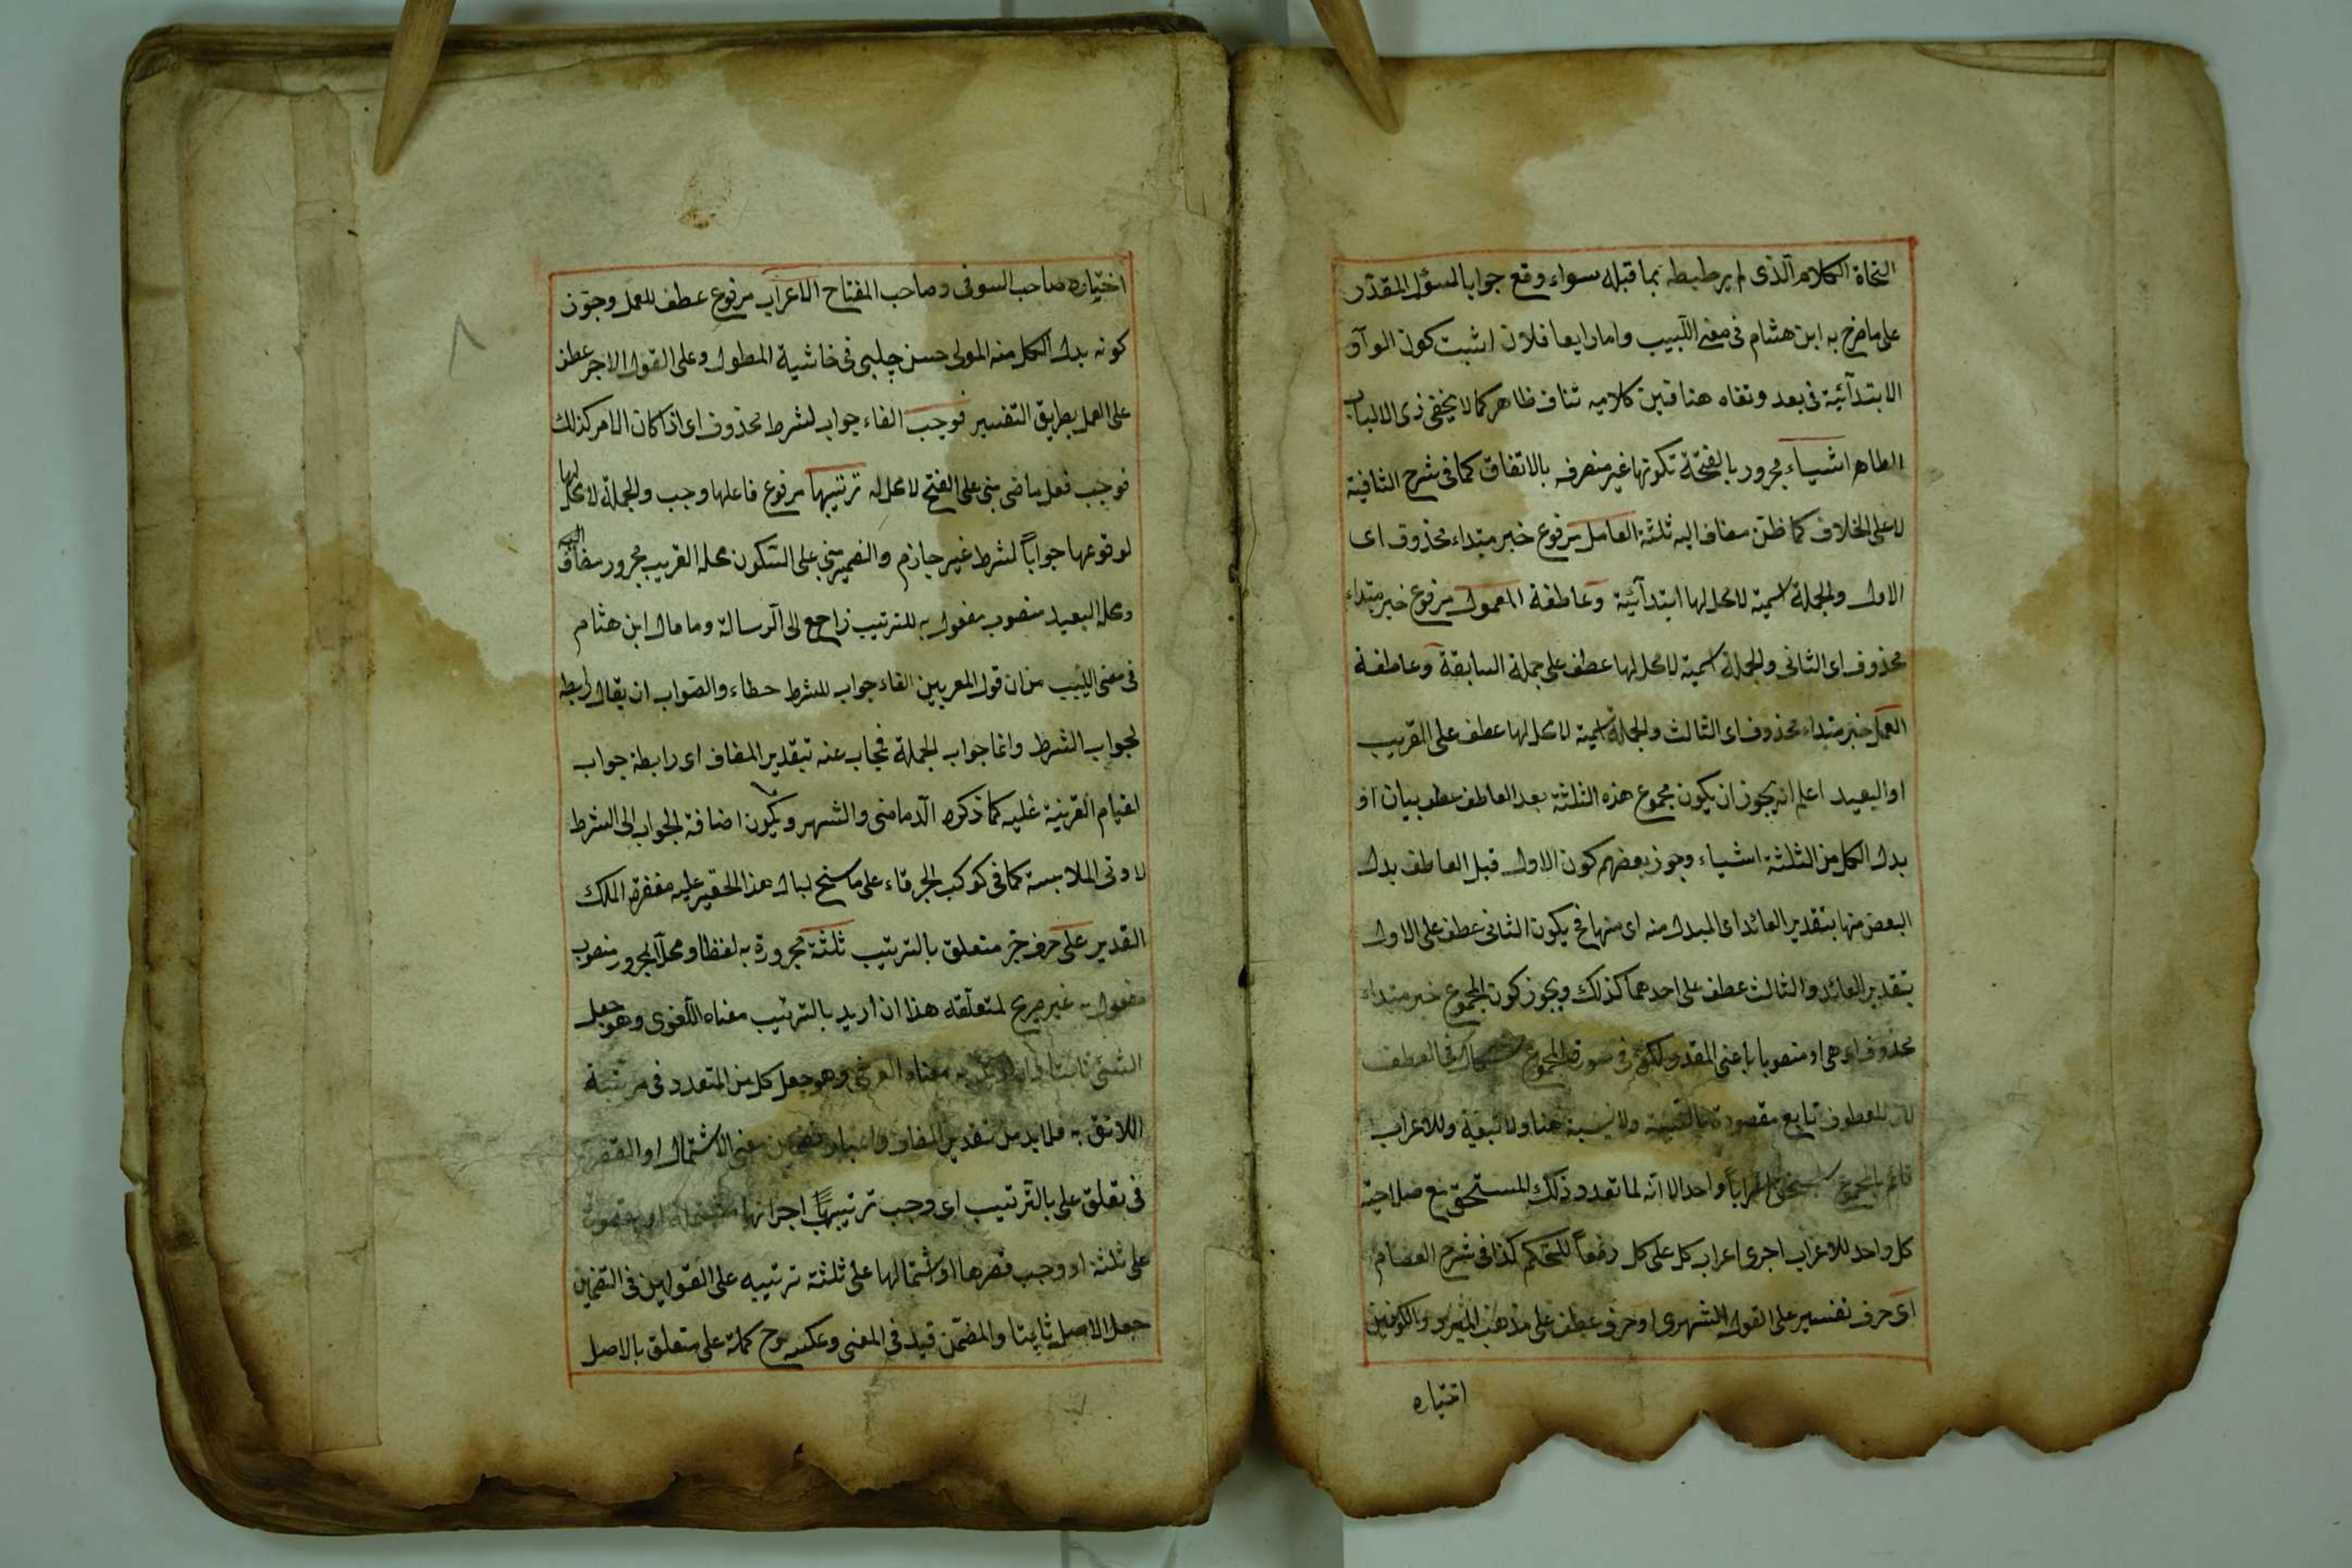 النحاة الكلام الذى لم يرطبطه بما قبله سواء وقع جوابا لسؤل المقدّر
على ما صرح به ابن هشام فى مغنى اللبيب واما رابعا فلان اثبت كون الواو
الابتدآئية فى بعد ونفاه هنا فبين كلاميه تناف ظاهر كما لا يخفى ذى الالباب
الظاهر اشياء مجرور بالفتحة تكونها غير منصرفه بالاتفاق كما فى شرح الشافية
لا على الخلاف كما ظن مضاف اليه ثلثة العامل مرفوع خبر مبتداء محذوف اى
الاول والجملة اسمية لا محل لها ابتدآئية وعاطفة المعمول مرفوع خبر مبتداء
محذوف اى الثانى والجملة اسمية لا محل لها عطف على جملة السابقة وعاطفة
العمل خبر مبتداء محذوف اى الثالث والجملة اسمية لا محل لها عطف على القريب
او البعيد اعلم انه يجوز ان يكون مجموع هذه الثلثة بعد العاطف عطف بيان او
بدل الكل من الثلثة اشياء وجوز بعضهم كون الاول قبل العاطف بدل
البعض منها بتقدير العائد اى المبدل منه اى منها فح يكون الثانى عطف على الاول
بتقدير العائد والثالث عطف على احدهما كذلك ويجوز كون المجموع خبر مبتداء
محذوف اى هى او منصوبا باعنى المقدر لكن فى صورة المجموع فى العطف
لان المعطوف تابع مقصود بالنسبة ولا نسبة هنا ولا تبعية وللاعراب
المجموع يستحق اعرابا واحدا الا انه لما تعدد ذلك المستحق مع صلاحية
كل واحد للاعراب اجرى اعراب كل على كل دفعاً للتحكم كذا فى شرح العصام
اى حرف تفسير على القول الشهرى او حرف عطف على مذهب المبرد والكوفين
اختياره
اختياره صاحب السوفى وصاحب المفتاح الاعراب مرفوع عطف للعمل وجوّز
كونه بدل الكل منه المولى حسن چلبى فى حاشية المطول وعلى القول الاخر عطف
على العمل بطريق التفسير فوجب الفاء جواب لشرط محذوف اى اذا كان الامر كذلك
فوجب فعل ماضى بنى على الفتح لا محل له ترتيبها مرفوع فاعلها وجب والجملة لا محل لها
لوقوعها جواباً لشرط غير جازم والضمير بنى على السكون محله القريب مجرور مضاف اليه
ومحله البعيد منصوب مفعول به للترتيب راجع الى الرسالة وما قال ابن هشام
فى مغنى اللبيب من ان قول المعربين الفاء جواب للشرط خطاء والصواب ان يقال رابطه
لجواب الشرط وانما جواب الجملة فيجاب عنه بتقدير المضاف اى رابطة جواب
لقيام القرينة عليه كما ذكره الدماضى والشهر ويكون اضافة الجواب الى الشرط
لادنى الملابسة كما فى كوكب الخرقاء على ما سنح لبال هذا الحقير عليه مغفرة الملك
القدير على حرف جر متعلق بالترتيب ثلثة مجرورة به لفظا ومحلا المجرور منصوب
مفعول به غير صريح لمتعلقه هذا ان اريد بالترتيب معناه اللغوى وهو جعل
الشئ ثابتا معناه العرفى وهو جعل كل من المتعدد فى مرتبة
اللائق به فلا بد من تقدير المضاف معنى الاشتمال او القصر
فى تعلق على بالترتيب اى وجب ترتيبها اجزائها
على ثلثة او وجب قصرها او اشتمالها على ثلثة ترتيبه على القولين فى التضمين
جعل الاصل ثابتا والمضمّن قيد فى المعنى وعكسه وح كلمة على متعلق بالاصل